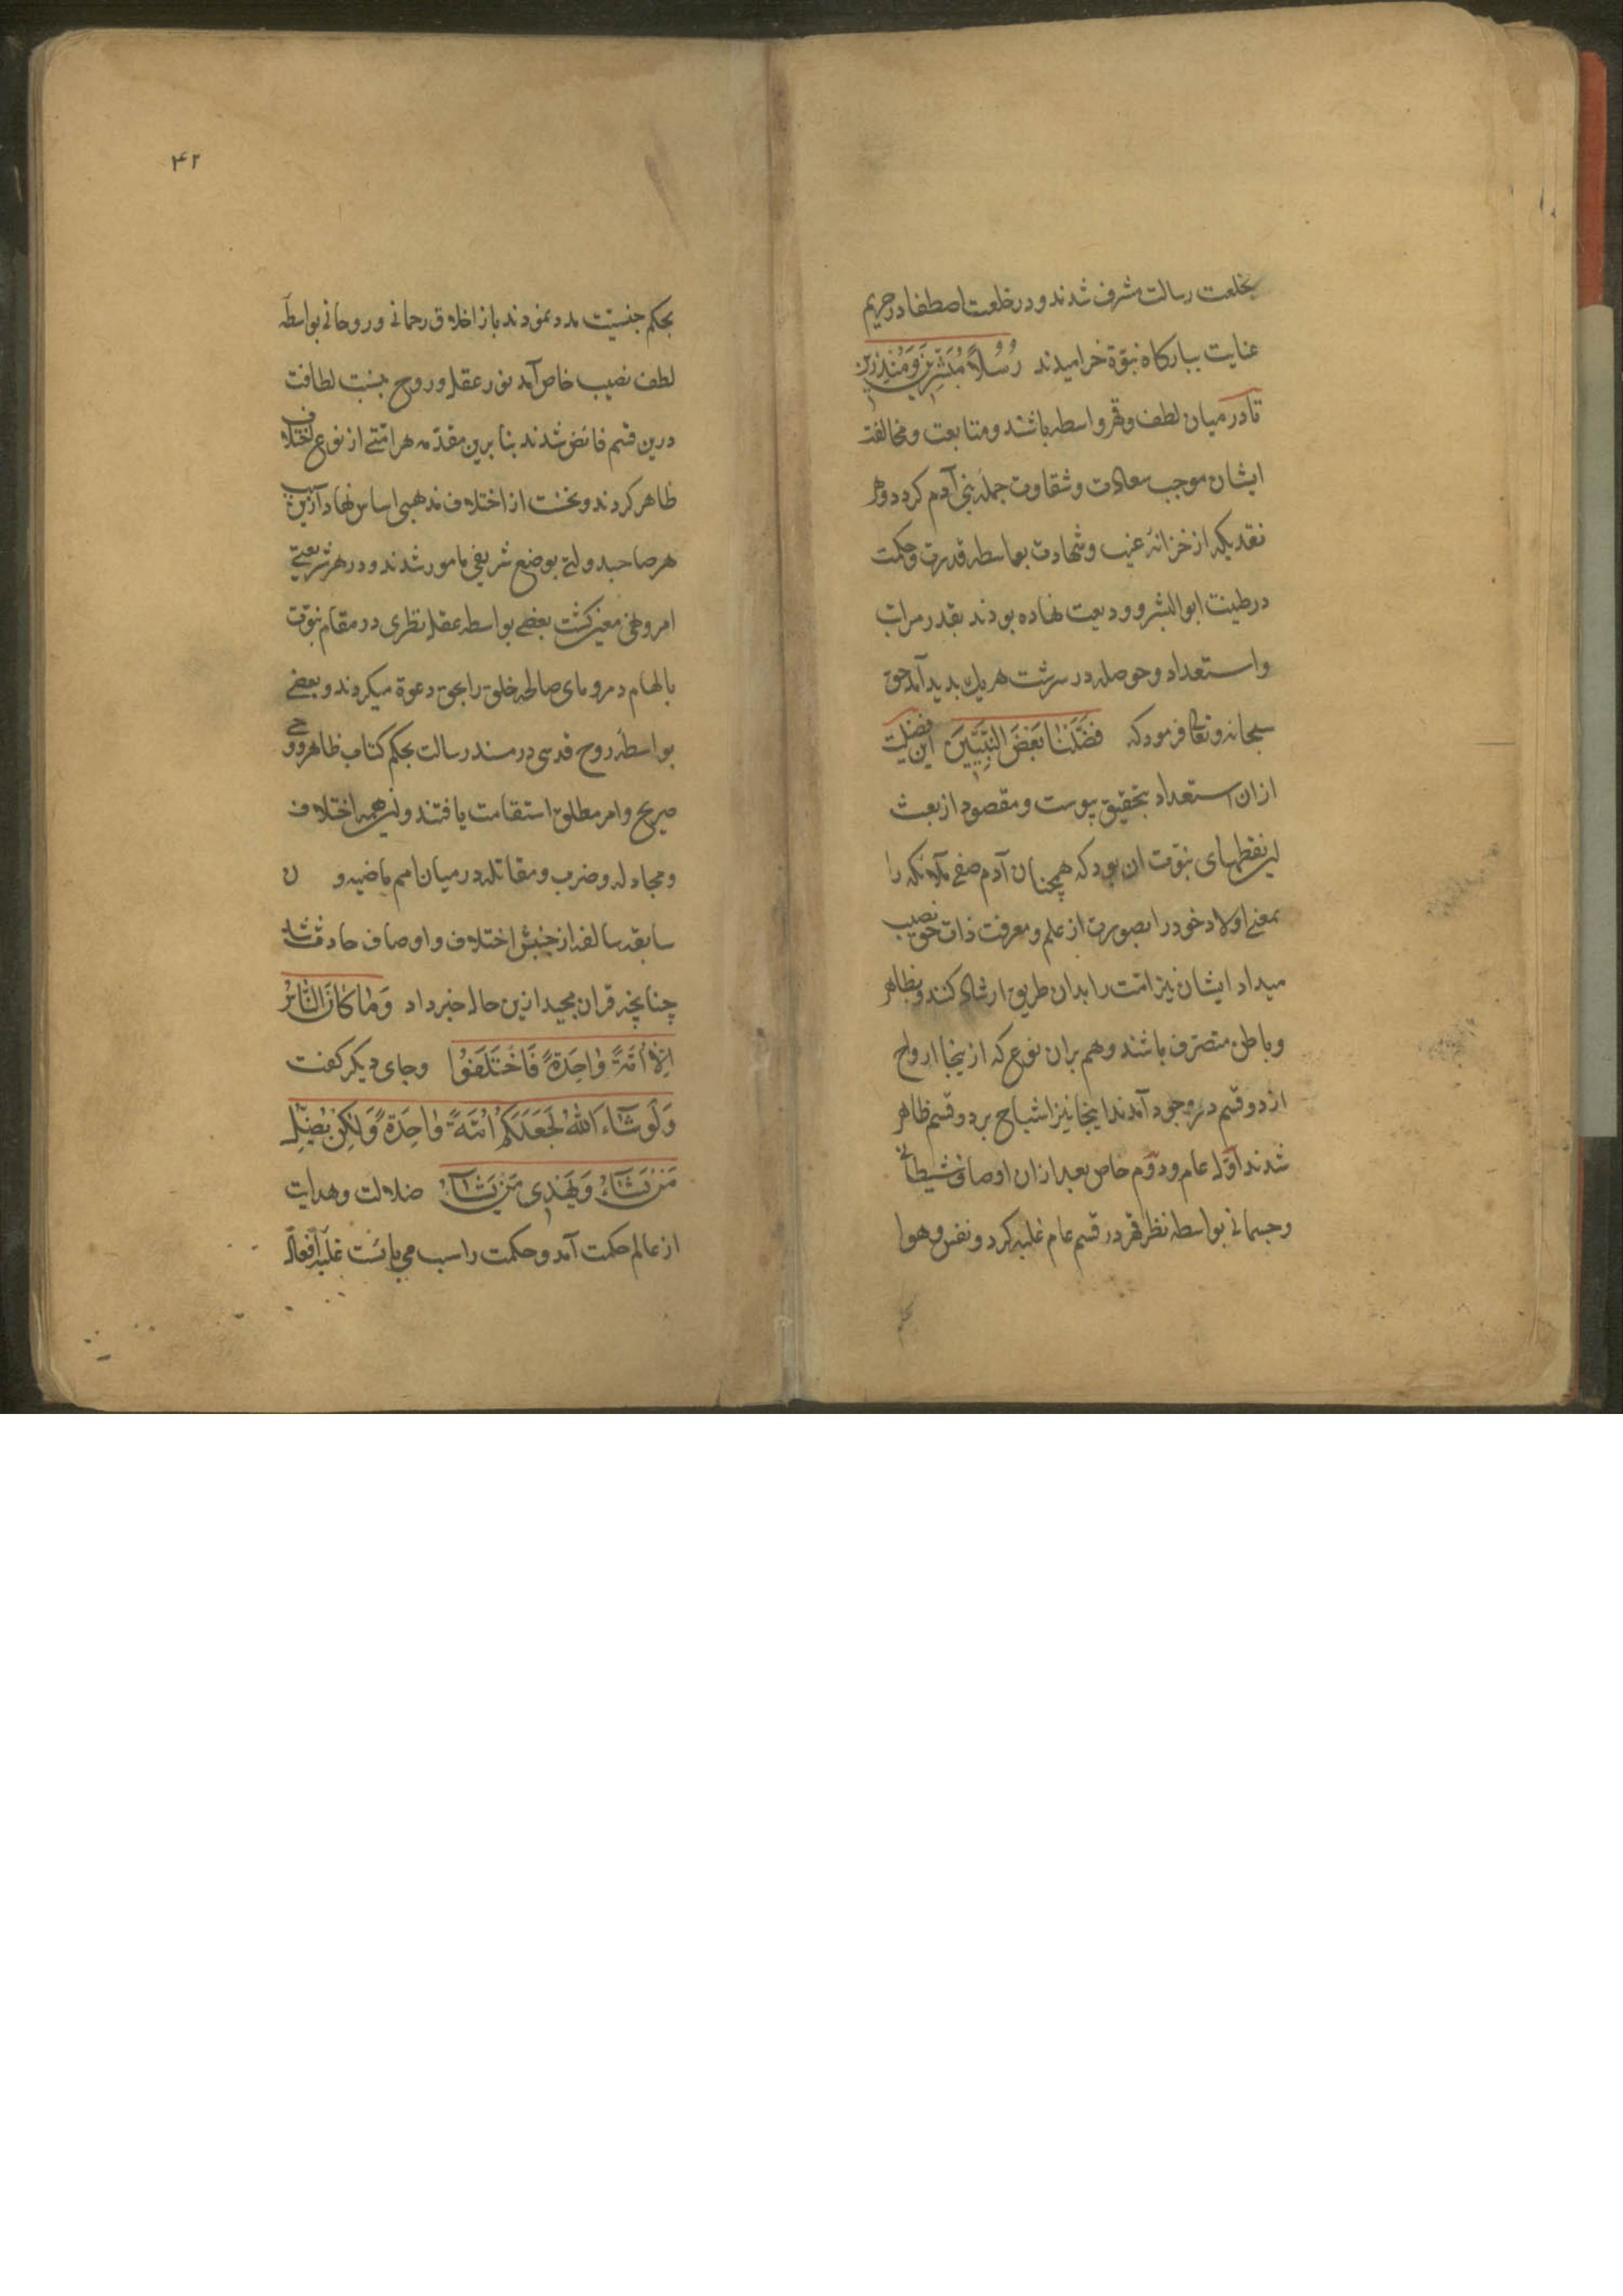 بخلعت رسالت مشرف شدند و در خلعت اصطفا در حریم
عنایت ببارکاه نبوّة خرامیدند رُسُلاً مُبَشِّرینَ وَمُنْذِرینَ
تا در میان لطف و قهر واسطه باشند و متابعت و مخالفت
ایشان موجب سعادت و شقاوت جمله بنی آدم کردد و هر
نقدیکه از خزانهٔ غیب و شهادت بواسطه قدرت و حکمت
در طینت ابوالبشر و ودیعت نهاده بودند بقدر مراتب
و استعداد و حوصله در سرشت هر یك بدید آمد حق
سبحانه و تعالی فرمود که فَضَّلْنٰا بَعْضَ النَّبِیّینَ این فضلیت
ازان استعداد بتحقیق پیوست و مقصود از بعث
این نقطهای نبوّت ان بود که همچنان آدم صفی ملائکه را
بمعنی اولاد خود را بصورت از علم و معرفت ذات حق نصیب
میداد ایشان نیز امّت را بدان طریق ارشاد کنند و بظاهر
و باطن متصرّف باشند و هم بران نوع که از ینجا ارواح
از دو قسم در وجود آمدند اینجا نیز اشباح بر دو قسم ظاهر
شدند اوّل عام و دوّم خاص بعد ازان اوصاف شیطانی
و جسمانی بواسطه نظر قهر در قسم عام غلبه کرد و نفس و هوا
بحکم
۴۲
بحکم جنسیّت مدد نمودند باز اخلاق رحمانی و روحانی بواسطهٔ
لطف نصیب خاص آمد نور عقل و روح بنسبت لطافت
درین قسم فائض شدند بنا برین مقدّمه هر امّتی از نوع اختلاف
ظاهر کردند و نخست از اختلاف مذهبی اساس نهاد ازین سبب
هر صاحبدولتی بوضع شریفی مامور شدند و در هر شریعتی
امر و نهی معیّن کشت بعضی بواسطه عقل نظری در مقام نبوّت
بالهام و رویای صالحه خلق را بحق دعوة میکردند و بعضی
بواسطهٔ روح قدسی در مسند رسالت بحکم کتاب ظاهر و وحی
صریح و امر مطلق استقامت یافتند و این همه اختلاف
و مجادله و ضرب و مقاتله در میان امم ماضیه و ن
سابقه سالفه از جنبش اختلاف و اوصاف حادث شد
چنانچه قران مجید ازین حال خبر داد وَمٰا کٰانَ النّٰاسُ
اِلّٰا اُمَّةً وٰاحِدَةً فَاخْتَلَفُوا وجای دیکر کفت
وَلَوْ شٰآءَ اللّٰهُ لَجَعَلَکُمْ اُمَّةً وٰاحِدَةً وَلٰکِنْ یُضِلُّ
مَنْ یَشٰآءُ وَیَهْدِی مَنْ یَشٰآءُ ضلالت و هدایت
از عالم حکمت آمد و حکمت را سبب می بایست غلبهٔ افعال